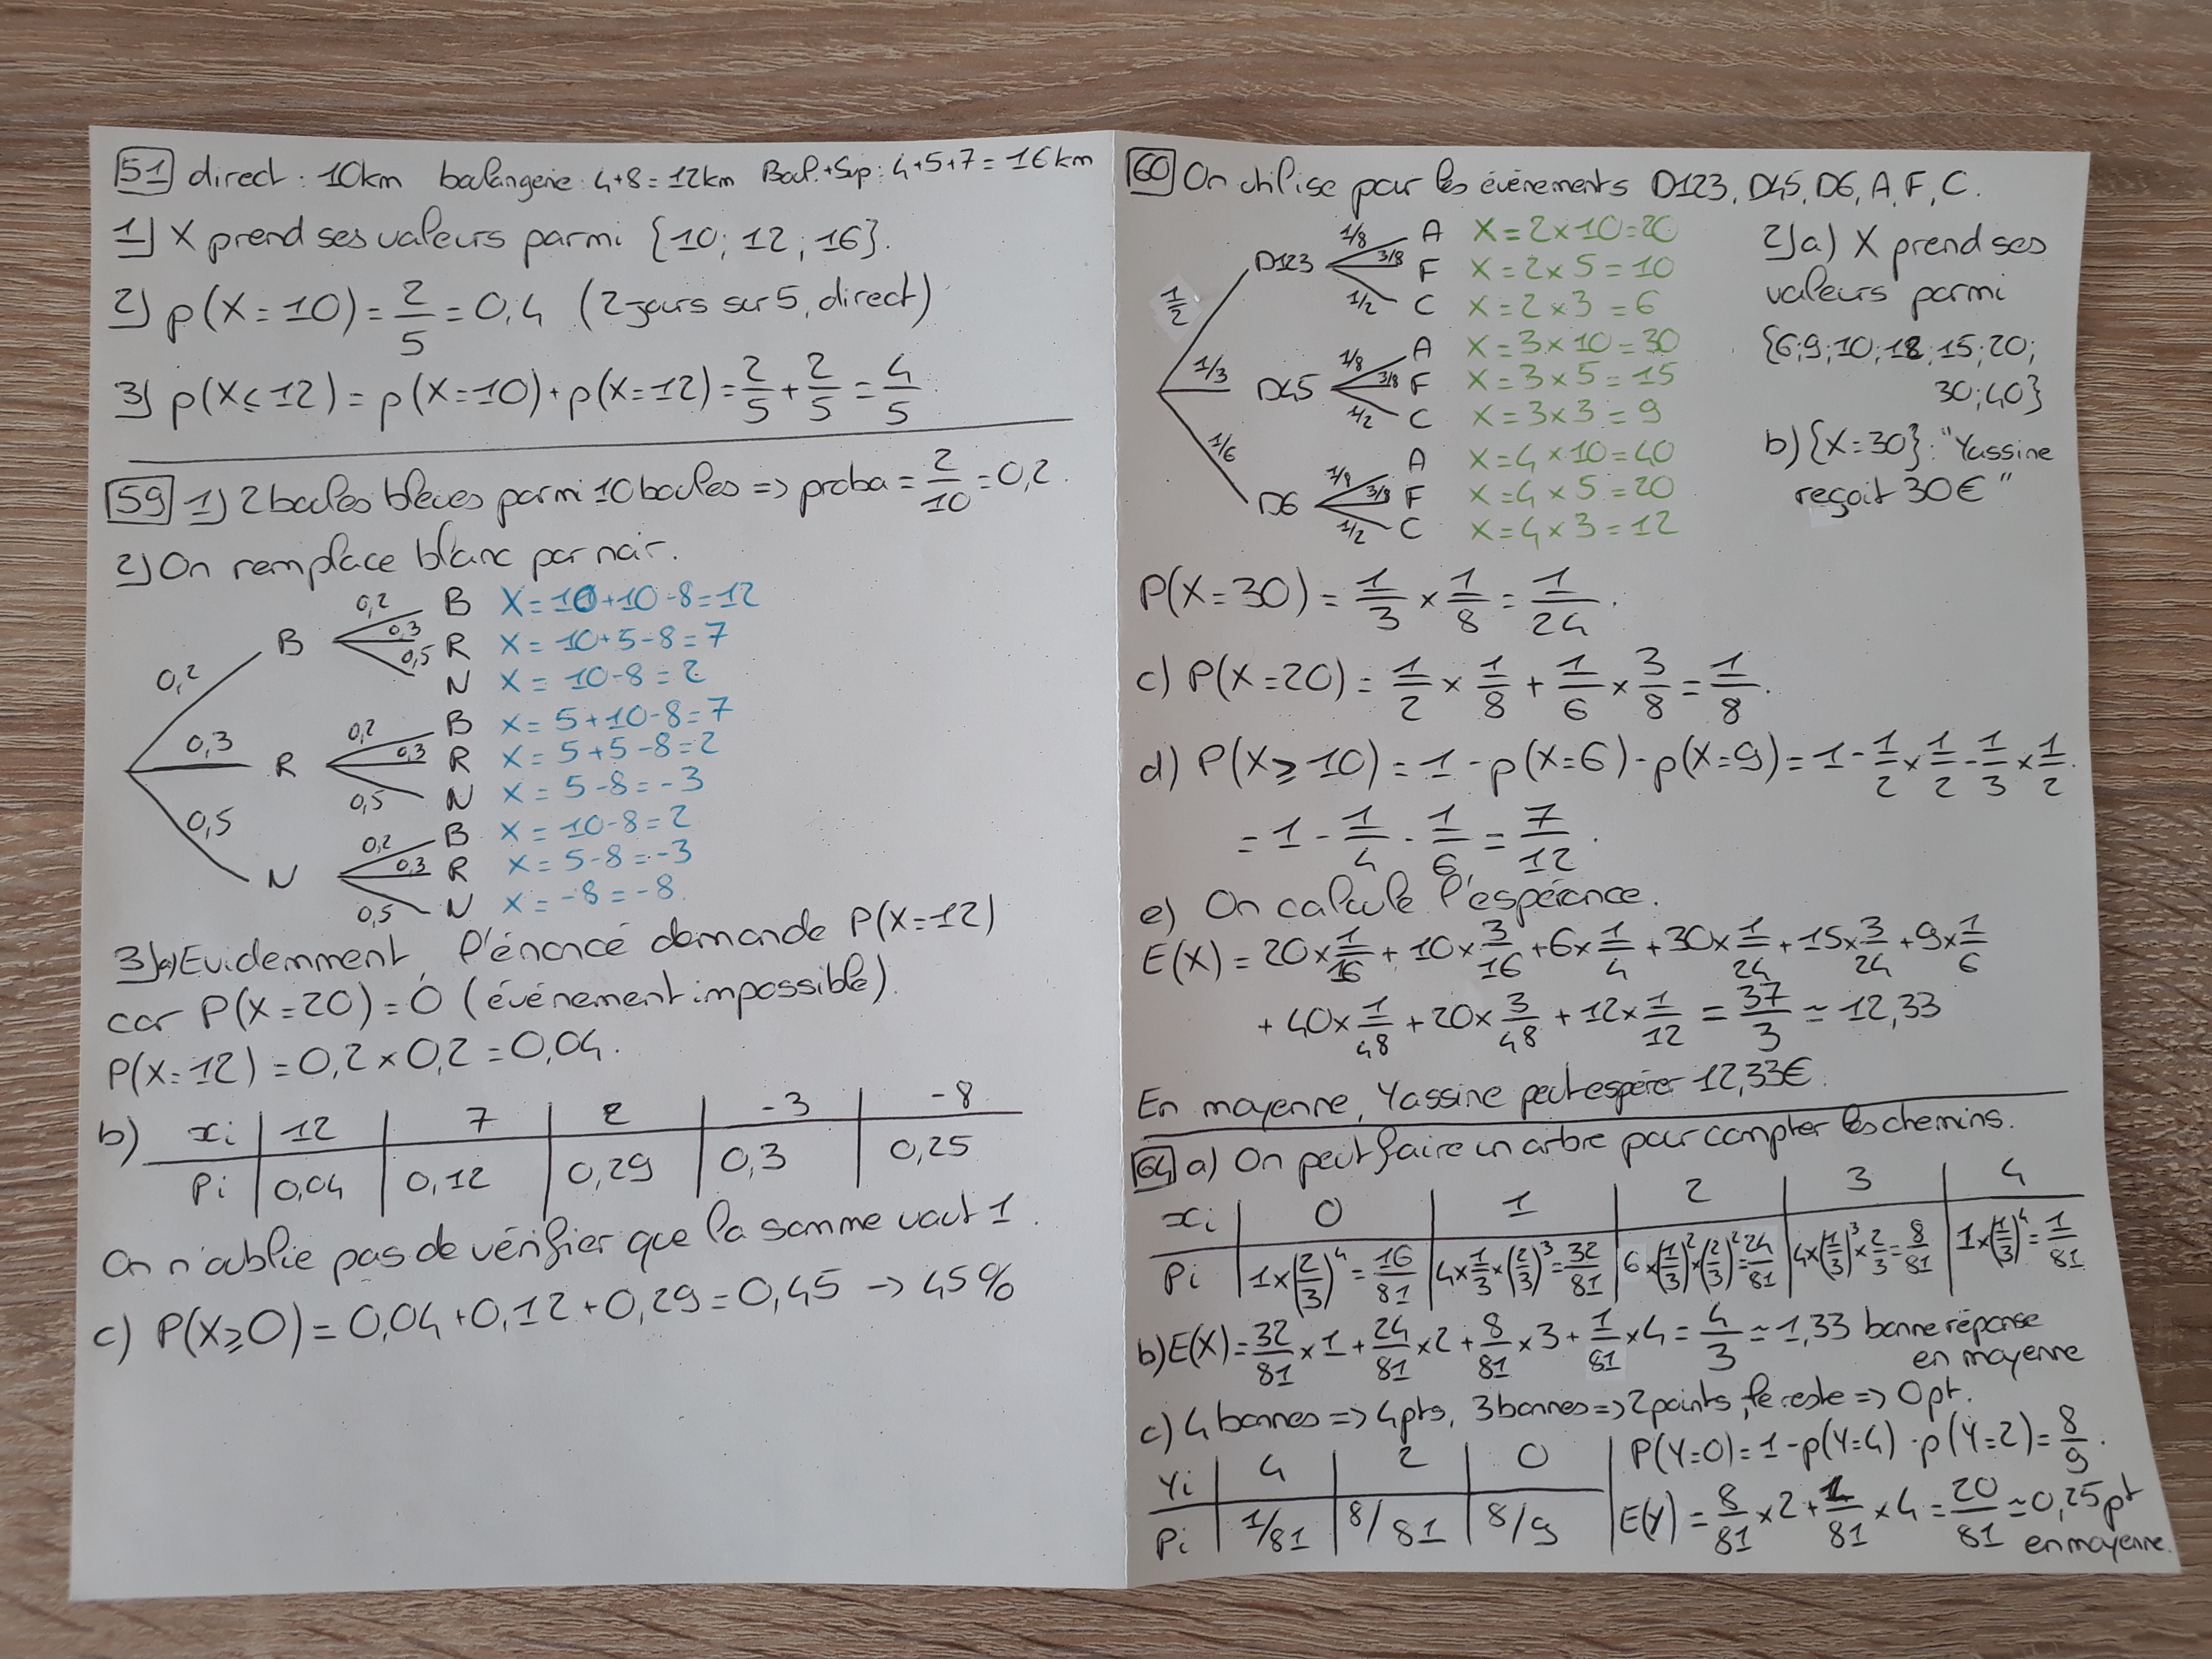 51 direct : 10km boulangerie : 4+8 = 12km Boul.+Sup : 4+5+7 = 16km
1) X prend ses valeurs parmi {10; 12; 16}.
2) p(X = 10) = 2/5 = 0,4 (2 jours sur 5, direct)
3) p(X ≤ 12) = p(X=10) + p(X=12) = 2/5 + 2/5 = 4/5
59 1) 2 boules bleues parmi 10 boules => proba = 2/10 = 0,2.
2) On remplace blanc par noir.
0,2 B 0,2 B X = 10+10-8=12
0,3 R X = 10+5-8=7
0,5 N X = 10-8=2
0,3 R 0,2 B X = 5+10-8=7
0,3 R X = 5+5-8=2
0,5 N X = 5-8=-3
0,5 N 0,2 B X = 10-8=2
0,3 R X = 5-8=-3
0,5 N X = -8=-8
3)a) Evidemment, l'énoncé demande P(X=12)
car P(X=20) = 0 (événement impossible).
P(X=12) = 0,2 x 0,2 = 0,04.
b) xi 12 7 2 -3 -8
Pi 0,04 0,12 0,29 0,3 0,25
On n'oublie pas de vérifier que la somme vaut 1.
c) P(X≥0) = 0,04+0,12+0,29=0,45 → 45%
60 On utilise pour les événements D123, D45, D6, A, F, C.
1/2 D123 1/8 A X = 2x10=20
3/8 F X = 2x5=10
1/2 C X = 2x3=6
1/3 D45 1/8 A X = 3x10=30
3/8 F X = 3x5=15
1/2 C X = 3x3=9
1/6 D6 1/8 A X = 4x10=40
3/8 F X = 4x5=20
1/2 C X = 4x3=12
2)a) X prend ses
valeurs parmi
{6;9;10;12;15;20;
30;40}
b) {X=30}: "Yassine
reçoit 30€"
P(X=30) = 1/3 x 1/8 = 1/24.
c) P(X=20) = 1/2 x 1/8 + 1/6 x 3/8 = 1/8.
d) P(X≥10) = 1 - p(X=6) - p(X=9) = 1 - 1/2 x 1/2 - 1/3 x 1/2.
= 1 - 1/4 - 1/6 = 7/12.
e) On calcule l'espérance.
E(X) = 20x1/16 + 10x3/16 + 6x1/4 + 30x1/24 + 15x3/24 + 9x1/6
+ 40x1/48 + 20x3/48 + 12x1/12 = 37/3 ≃ 12,33
En moyenne, Yassine peut espérer 12,33€.
64 a) On peut faire un arbre pour compter les chemins.
xi 0 1 2 3 4
Pi 1x(2/3)^4 = 16/81 4x1/3x(2/3)^3 = 32/81 6x(1/3)^2x(2/3)^2 = 24/81 4x(1/3)^3x2/3 = 8/81 1x(1/3)^4 = 1/81
b) E(X) = 32/81 x 1 + 24/81 x 2 + 8/81 x 3 + 1/81 x 4 = 4/3 ≃ 1,33 bonne réponse
en moyenne
c) 4 bonnes => 4pts, 3 bonnes => 2 points, le reste => 0pt.
Yi 4 2 0
Pi 1/81 8/81 8/9
P(Y=0) = 1 - p(Y=4) - p(Y=2) = 8/9.
E(Y) = 8/81 x 2 + 1/81 x 4 = 20/81 ≃ 0,25pt
en moyenne.